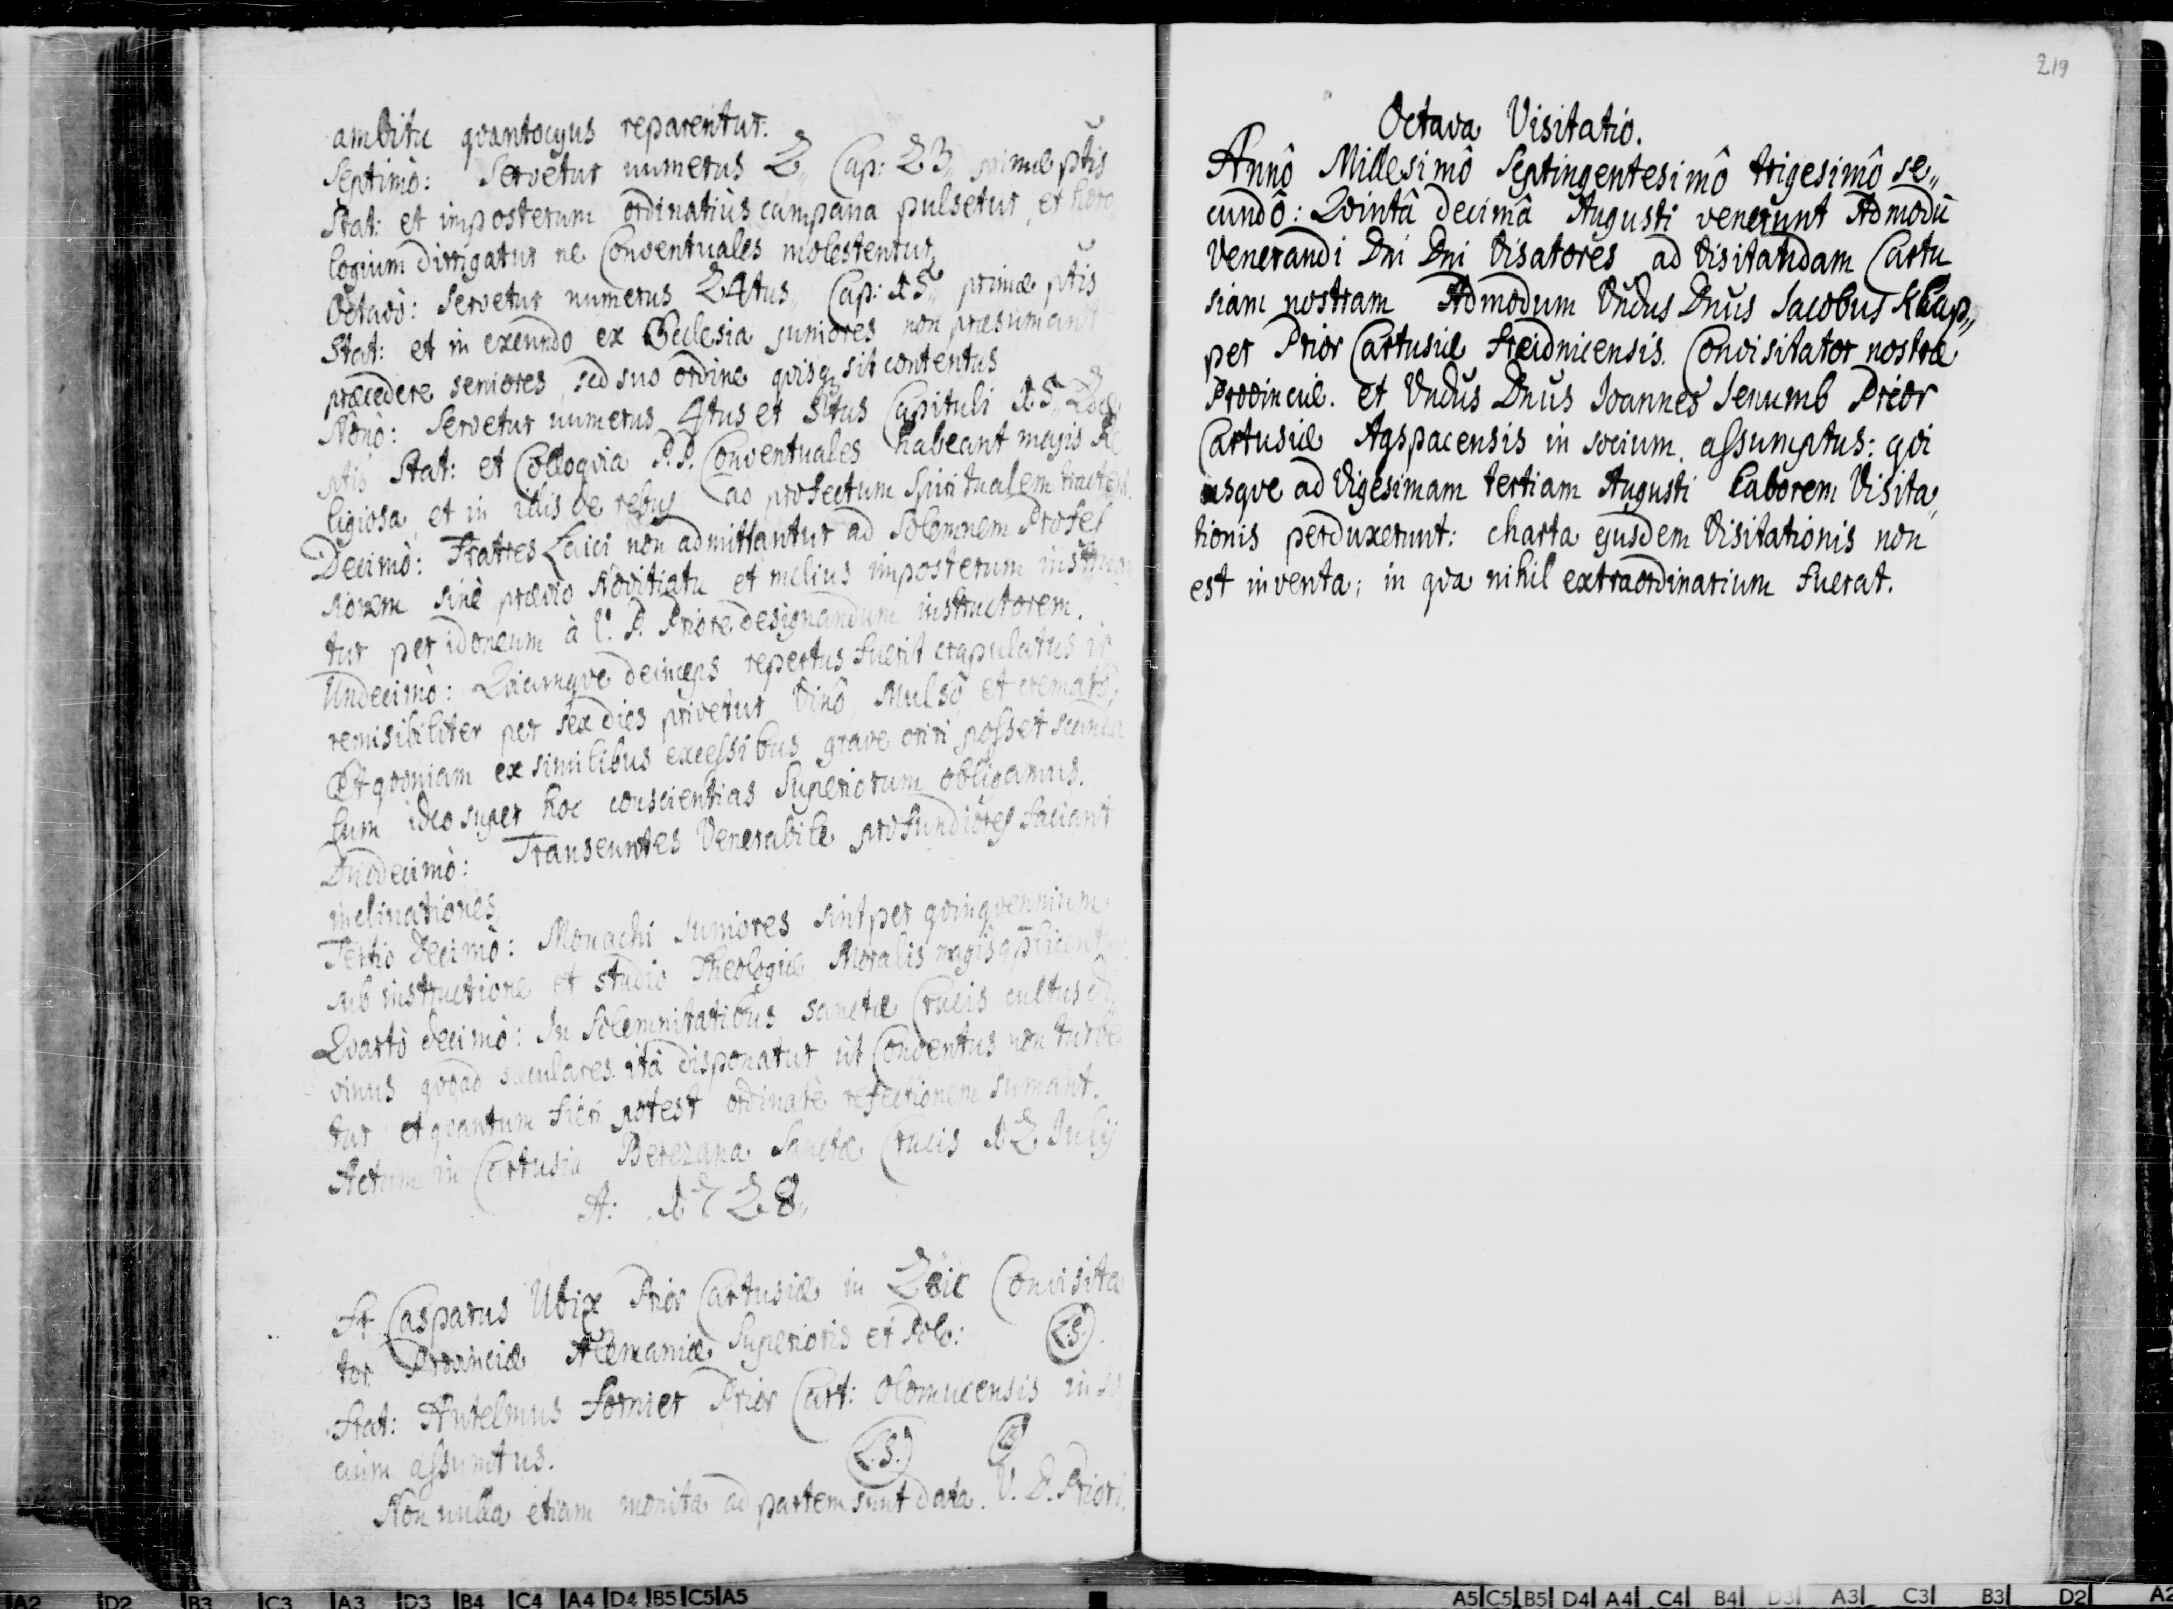 ambitu qvantocyus reparentur.
Septimò: Servetur numerus 2. Cap: 23. primæ ptis
Stat: et imposterum ordinatiùs campana pulsetur, et horo
logium dirigatur ne Conventuales molestentur.
Octavò: Servetur numerus 24tus, Cap: 15. primæ ptis
Stat: et in exeundo ex Ecclesia juniores non præsumant
præcedere seniores, sed suo ordine qvisq; sit contentus
Nonò: Servetur numerus 4tus et 5tus Capituli 15. 2dæ
ptis Stat: et Colloqvia P.P. Conventuales habeant magis Re
ligiosa, et in illis de rebus ad profectum Spiritualem tractent.
Decimò: Fratres Laici non admittantur ad Solemnem Profes
sionem sinè prævio Novitiatu et melius imposterum instruan
tur per idoneum à V. P. Priore designandum instructorem.
Undecimò: Qvicunqve deinceps repertus fuerit crapulatus ir
remisibiliter per sex dies privetur Vinô, Mulsô, et crematô,
Et qvoniam ex similibus excessibus grave oriri posset scanda
lum ideo super hoc conscientias Superiorum obligamus.
Duodecimò: Transeuntes Venerabile profundiores faciant
inclinationes.
Tertio decimò: Monachi Juniores sint per qvinqvennium
sub instructione et studio Theologiæ Moralis magis applicentur.
Qvartò decimò: In Solemnitatibus sanctæ Crucis cultus di
vinus qvoad sæculares ità disponatur ut Conventus non turbe
tur et qvantum fieri potest ordinatè refectionem sumant.
Actum in Cartusia Berezana Sanctæ Crucis 12 Julij
A: 1728.
Fr. Casparus Prior Cartusiæ in Convisita
tor Provinciæ Alemaniæ Superioris et Polo: L.S.
Frat: Antelmus Fornier Prior Cart: Olomucensis in so
cium assumtus. L.S.
Non nulla etiam monita ad partem sunt data. V. P. Priori.
219
Octava Visitatio.
Annô Millesimô Septingentesimô trigesimô se„
cundô: Qvintâ decimâ Augusti venerunt Admodũ
Venerandi Dni Dni Visatores ad Visitandam Cartu
siam nostram Admodum Vndus Dnus Jacobus Khap„
per Prior Cartusiæ Freidnicensis. Convisitator nostræ
Provinciæ. et Vndus Dnus Joannes Jenumb Prior
Cartusiæ Agspacensis in socium assumptus: qvi
usqve ad Vigesimam tertiam Augusti laborem Visita„
tionis perduxerunt: charta ejusdem Visitationis non
est inventa; in qva nihil extraordinarium fuerat.